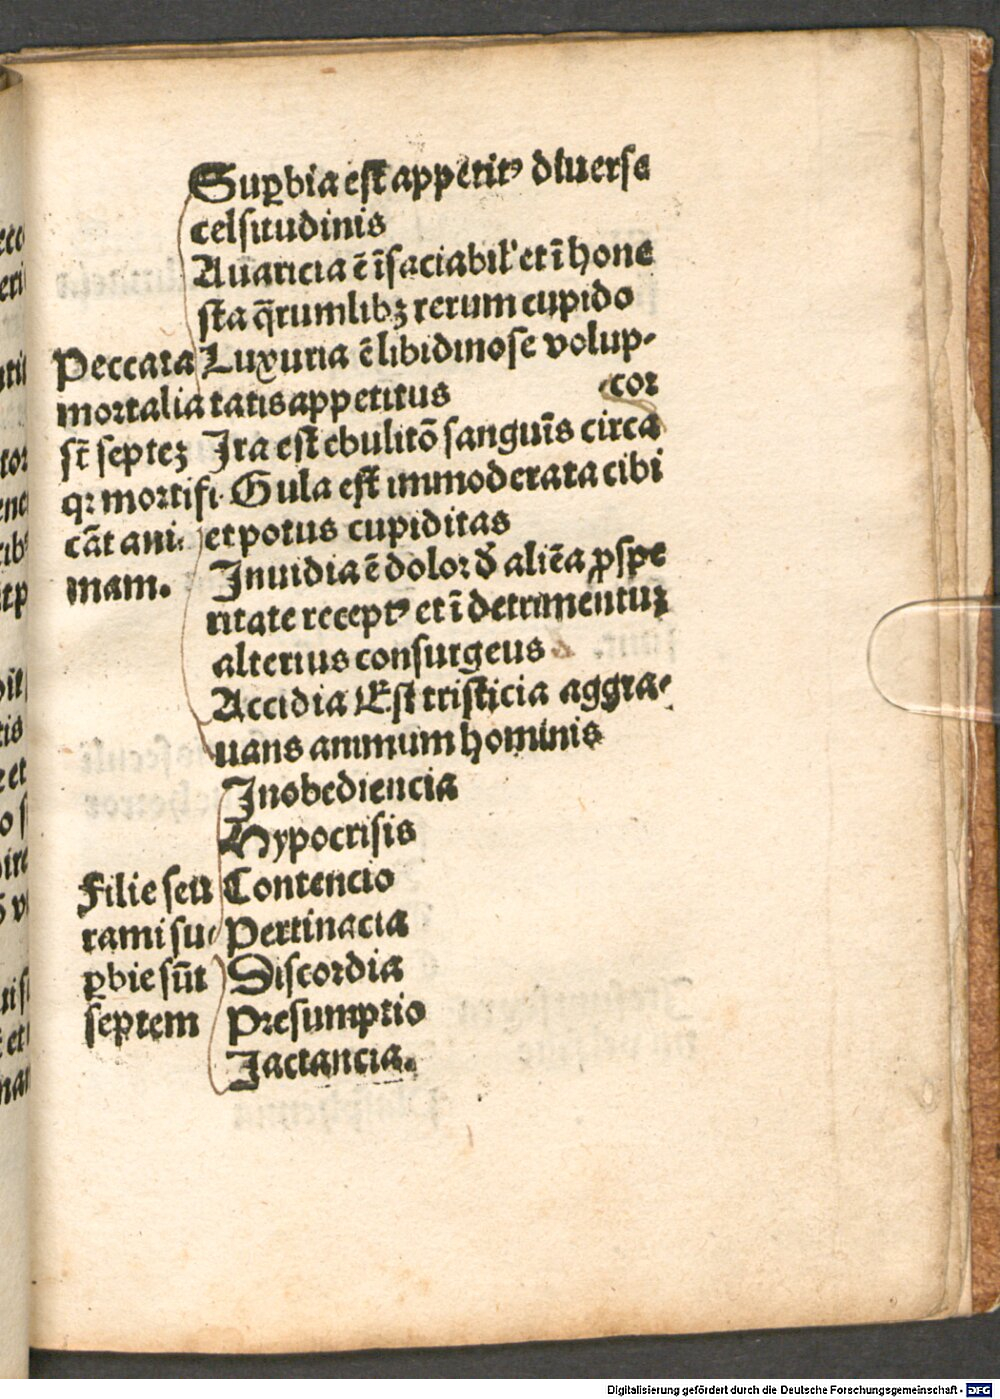 Peccata
mortalia
st̄ septeꝫ
qꝛ mortifi
cāt ani
mam.
Suꝑbia est appetitꝰ diuerse
celsitudinis
Auaricia ē īsaciabil' et ī hone
sta q̄rumlibꝫ rerum cupido
Luxuria ē libidinose volup-
tatis appetitus
cor
Ira est ebulitō sanguīs circa
Gula est immoderata cibi
et potus cupiditas
Inuidia ē dolor ð aliēa ꝓspe
ritate receptꝰ et ī detrimentuꝫ
alterius consurgeus
Accidia Est tristicia aggra-
uans animum hominis
Filie seu
rami su
ꝑbie sūt
septem
Inobediencia
Hypocrisis
Contencio
Pertinacia
Discordia
Presumptio
Iactancia.
Digitalisierung gefördert durch die Deutsche Forschungsgemeinschaft - DFG